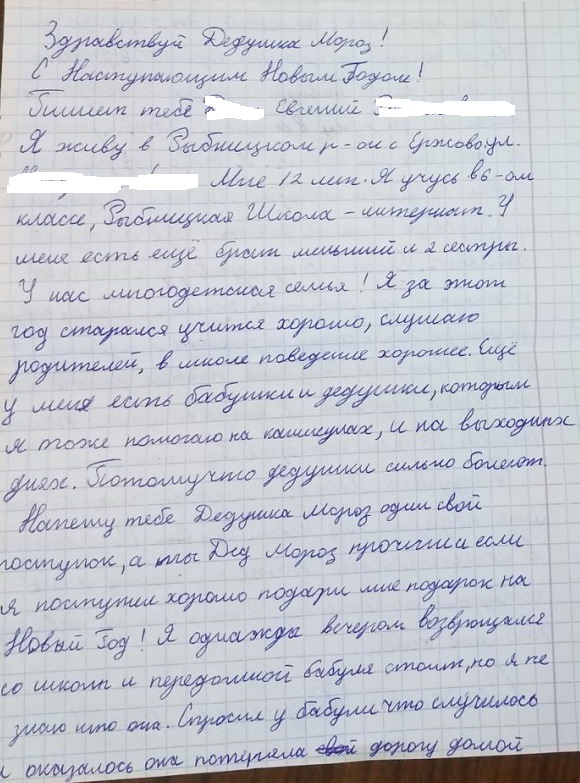 Здравствуй Дедушка Мороз!
С Наступающим Новым Годом!
Пишет тебе Евгений
Я живу в Рыбницком р-он с Ержово ул.
Мне 12 лет. Я учусь в 6-ом
классе, Рыбницкая Школа - интернат. У
меня есть ещё брат меньший и 2 сестры.
У нас многодетская семья! Я за этот
год старался учится хорошо, слушаю
родителей, в школе поведение хорошее. Ещё
у меня есть бабушки и дедушки, которым
я тоже помогаю на каникулах, и на выходных
днях. Потомучто дедушки сильно болеют.
Напишу тебе Дедушка Мороз один свой
поступок, а ты Дед Мороз прочти и если
я поступил хорошо подари мне подарок на
Новый Год! Я однажды вечером возвращался
со школы и передомной бабуля стоит, но я не
знаю кто она. Спросил у бабули что случилось
и оказалось она потеряла дорогу домой